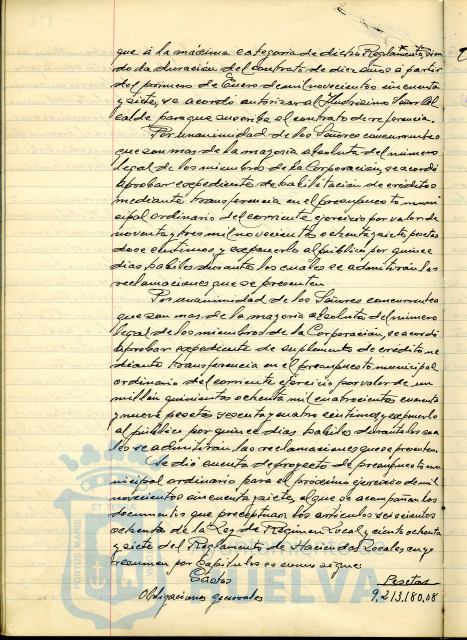 que á la máxima categoria de dicho Reglamento, sien
do la duración del contrato de diez años á partir
del primero de Enero de mil novecientos cincuenta
y siete, se acordó autorizar al Ilustrisimo Señor Al
calde para que suscriba el contrato de referencia.
Por unanimidad de los Señores concurrentes
que son mas de la mayoria absoluta del número
legal de los miembros de la Corporación, se acordó
aprobar expediente de habilitación de créditos
mediante transferencia en el presupuesto muni
cipal ordinario del corriente ejercicio por valor de
noventa y tres mil novecientos ochenta y siete pesetas
doce centimos y exponerlo al público por quince
dias habiles durante los cuales se admitirán las
reclamaciones que se presenten.
Por unanimidad de los Señores concurrentes
que son mas de la mayoria absoluta del número
legal de los miembros de la Corporación, se acordó
aprobar expediente de suplemento de crédito me
diante transferencia en el presupuesto municipal
ordinario del corriente ejercicio por valor de un
millón quinientos ochenta mil cuatrocientos cuarenta
y nueve pesetas sesenta y cuatro centimos y exponerlo
al público por quince dias habiles durante los cua
les se admitirán las reclamaciones que se presenten.
Se dió cuenta de proyecto de presupuesto mu
nicipal ordinario para el próximo ejercicio de mil
novecientos cincuenta y siete, al que se acompañan los
documentos que preceptuan los articulos seiscientos
ochenta de la Ley de Régimen Local y ciento ochenta
y siete del Reglamento de Haciendas Locales cuyo
resumen por Capitulos es como sigue:
Gastos Pesetas
Obligaciones generales 9.213.180,08
PORTUS MARIS
HUELVA